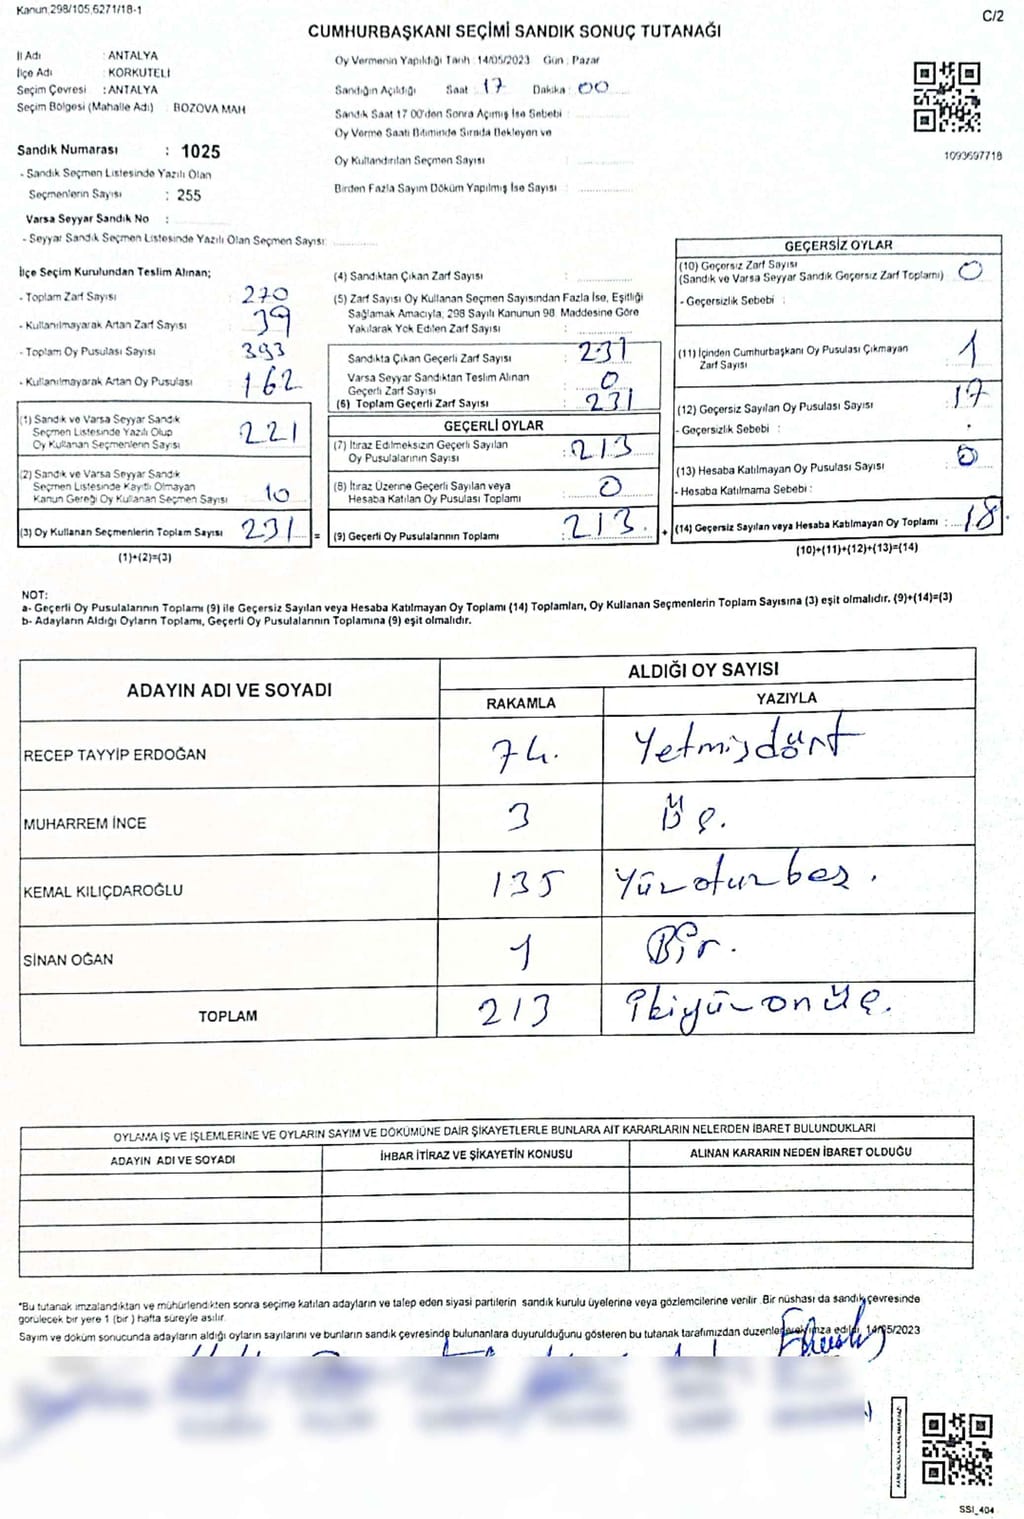 Kanun,298/105,6271/18-1
C/2
CUMHURBAŞKANI SEÇİMİ SANDIK SONUÇ TUTANAĞI
İl Adı : ANTALYA
İlçe Adı : KORKUTELİ
Seçim Çevresi : ANTALYA
Seçim Bölgesi (Mahalle Adı) : BOZOVA MAH
Sandık Numarası : 1025
- Sandık Seçmen Listesinde Yazılı Olan
Seçmenlerin Sayısı : 255
Varsa Seyyar Sandık No :
- Seyyar Sandık Seçmen Listesinde Yazılı Olan Seçmen Sayısı:
Oy Vermenin Yapıldığı Tarih :14/05/2023 Gün : Pazar
Sandığın Açıldığı Saat : 17 Dakika : 00
Sandık Saat 17.00'den Sonra Açılmış İse Sebebi :
Oy Verme Saati Bitiminde Sırada Bekleyen ve
Oy Kullandırılan Seçmen Sayısı :
Birden Fazla Sayım Döküm Yapılmış İse Sayısı :
1093697718
İlçe Seçim Kurulundan Teslim Alınan;
- Toplam Zarf Sayısı : 270
- Kullanılmayarak Artan Zarf Sayısı : 39
- Toplam Oy Pusulası Sayısı : 393
- Kullanılmayarak Artan Oy Pusulası : 162
(1) Sandık ve Varsa Seyyar Sandık
Seçmen Listesinde Yazılı Olup
Oy Kullanan Seçmenlerin Sayısı : 221
(2) Sandık ve Varsa Seyyar Sandık
Seçmen Listesinde Kayıtlı Olmayan
Kanun Gereği Oy Kullanan Seçmen Sayısı : 10
(3) Oy Kullanan Seçmenlerin Toplam Sayısı : 231 =
(1)+(2)=(3)
(4) Sandıktan Çıkan Zarf Sayısı :
(5) Zarf Sayısı Oy Kullanan Seçmen Sayısından Fazla İse, Eşitliği
Sağlamak Amacıyla, 298 Sayılı Kanunun 98. Maddesine Göre
Yakılarak Yok Edilen Zarf Sayısı :
Sandıkta Çıkan Geçerli Zarf Sayısı : 231
Varsa Seyyar Sandıktan Teslim Alınan
Geçerli Zarf Sayısı : 0
(6) Toplam Geçerli Zarf Sayısı : 231
GEÇERLİ OYLAR
(7) İtiraz Edilmeksizin Geçerli Sayılan
Oy Pusulalarının Sayısı : 213
(8) İtiraz Üzerine Geçerli Sayılan veya
Hesaba Katılan Oy Pusulası Toplamı : 0
(9) Geçerli Oy Pusulalarının Toplamı : 213 +
GEÇERSİZ OYLAR
(10) Geçersiz Zarf Sayısı
(Sandık ve Varsa Seyyar Sandık Geçersiz Zarf Toplamı) : 0
- Geçersizlik Sebebi :
(11) İçinden Cumhurbaşkanı Oy Pusulası Çıkmayan
Zarf Sayısı : 1
(12) Geçersiz Sayılan Oy Pusulası Sayısı : 17
- Geçersizlik Sebebi :
(13) Hesaba Katılmayan Oy Pusulası Sayısı : 0
- Hesaba Katılmama Sebebi :
(14) Geçersiz Sayılan veya Hesaba Katılmayan Oy Toplamı : 18
(10)+(11)+(12)+(13)=(14)
NOT:
a- Geçerli Oy Pusulalarının Toplamı (9) ile Geçersiz Sayılan veya Hesaba Katılmayan Oy Toplamı (14) Toplamları, Oy Kullanan Seçmenlerin Toplam Sayısına (3) eşit olmalıdır. (9)+(14)=(3)
b- Adayların Aldığı Oyların Toplamı, Geçerli Oy Pusulalarının Toplamına (9) eşit olmalıdır.
ADAYIN ADI VE SOYADI ALDIĞI OY SAYISI
RAKAMLA YAZIYLA
RECEP TAYYİP ERDOĞAN 74. Yetmişdört
MUHARREM İNCE 3 Üç.
KEMAL KILIÇDAROĞLU 135 Yüzotuzbeş.
SİNAN OĞAN 1 Bir.
TOPLAM 213 İkiyüzonüç.
OYLAMA İŞ VE İŞLEMLERİNE VE OYLARIN SAYIM VE DÖKÜMÜNE DAİR ŞİKAYETLERLE BUNLARA AİT KARARLARIN NELERDEN İBARET BULUNDUKLARI
ADAYIN ADI VE SOYADI İHBAR İTİRAZ VE ŞİKAYETİN KONUSU ALINAN KARARIN NEDEN İBARET OLDUĞU
*Bu tutanak imzalandıktan ve mühürlendikten sonra seçime katılan adayların ve talep eden siyasi partilerin sandık kurulu üyelerine veya gözlemcilerine verilir. Bir nüshası da sandık çevresinde
görülecek bir yere 1 (bir) hafta süreyle asılır.
Sayım ve döküm sonucunda adayların aldığı oyların sayılarını ve bunların sandık çevresinde bulunanlara duyurulduğunu gösteren bu tutanak tarafımızdan düzenlenerek imza edildi. 14/05/2023
SSI_404